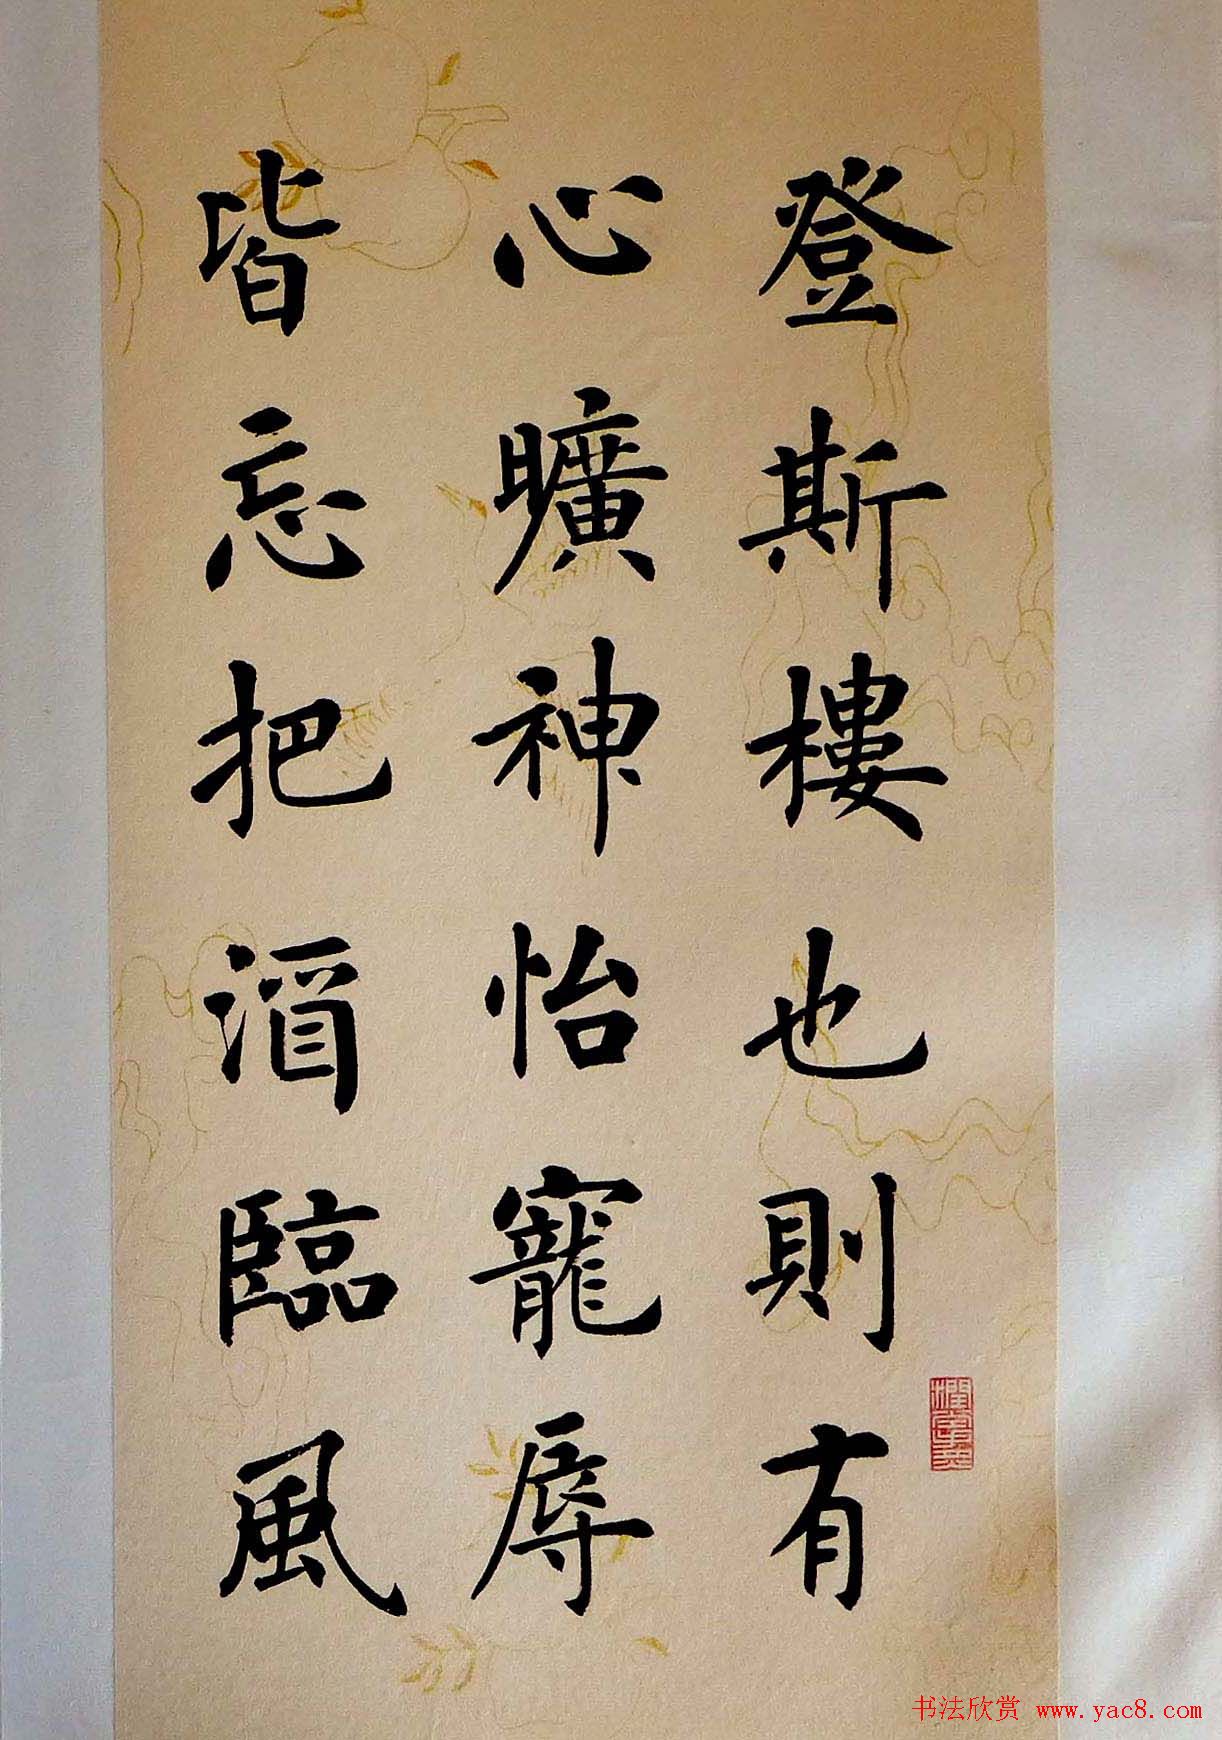 登斯樓也則有
心曠神怡寵辱
皆忘把酒臨風
书法欣赏 www.yac8.com